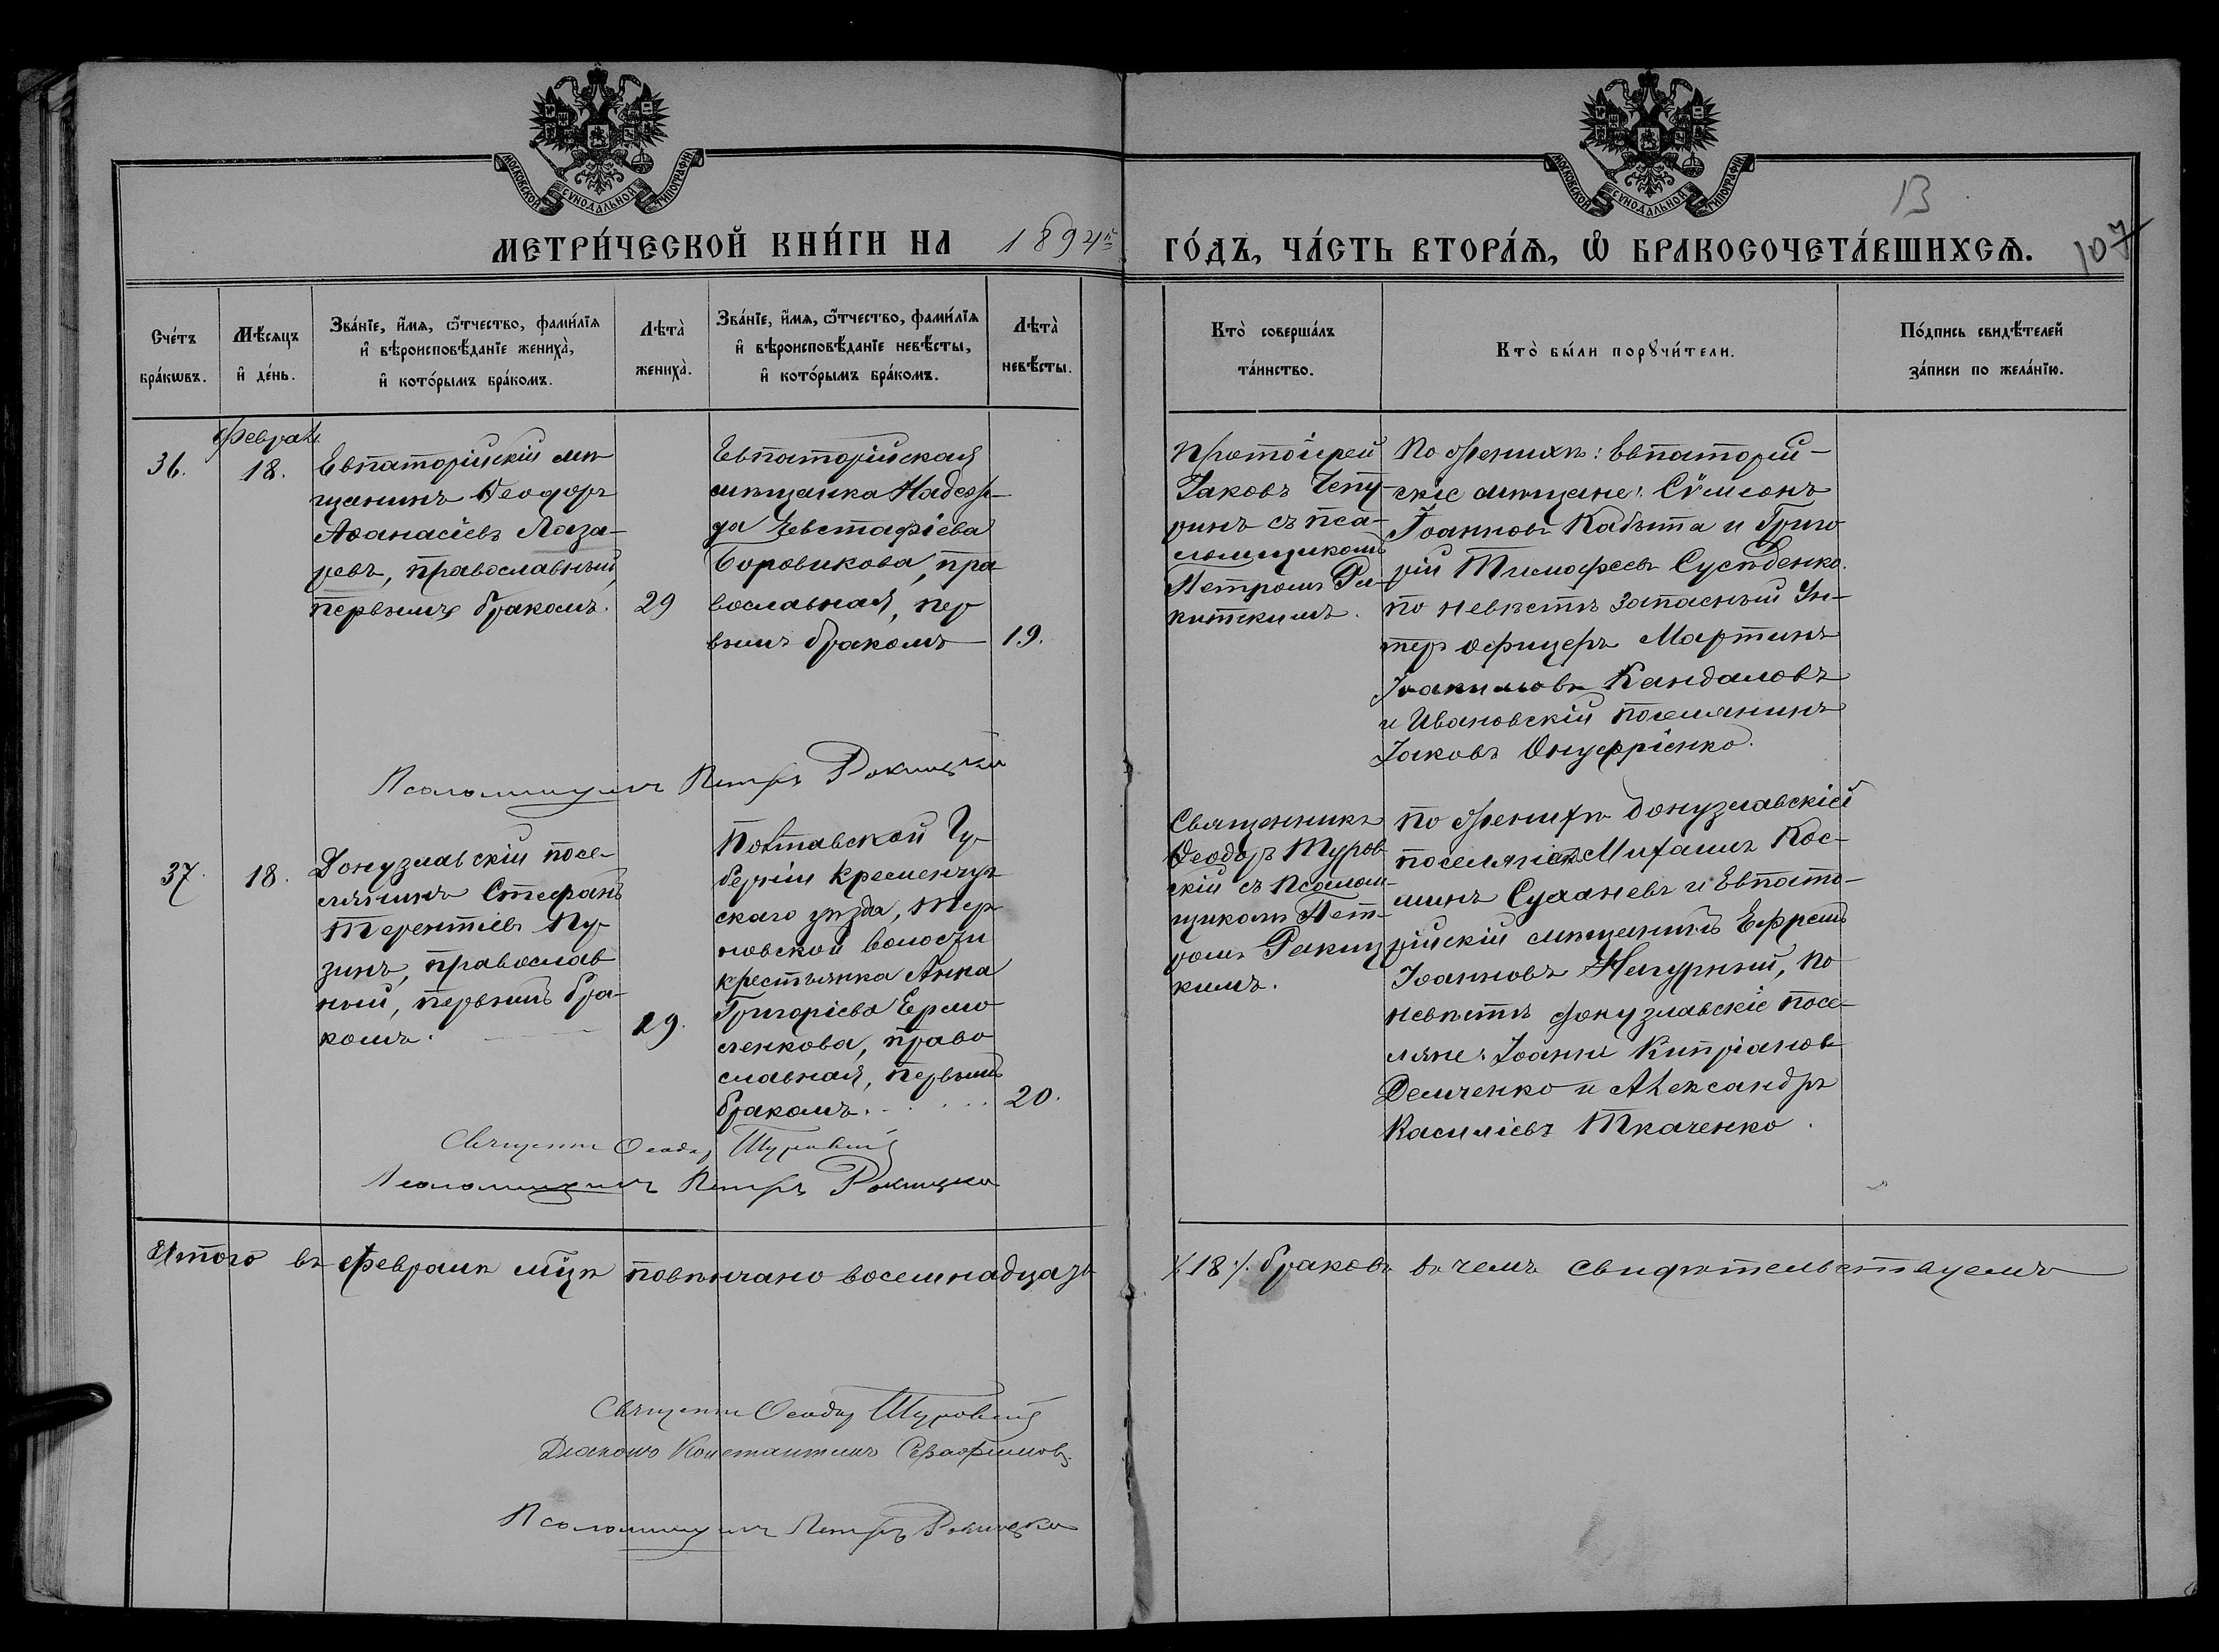 МОСКОВСКОЙ СѴНОДАЛЬНОЙ ТИПОГРАФІИ
МОСКОВСКОЙ СѴНОДАЛЬНОЙ ТИПОГРАФІИ
13
МЕТРИ́ЧЕСКОЙ КНИ́ГИ НА 1894й ГО́ДЪ, ЧА́СТЬ ВТОРА́Ѧ, Ѡ҆ БРАКОСОЧЕТА́ВШИХСѦ.
107
Сче́тъ
бра́кѡвъ.
Мѣ́сѧцъ
и҆ де́нь.
Зва́нїе, и҆́мѧ, ѻ҆́тчество, фами́лїѧ
и҆ вѣроисповѣ́данїе женихà,
и҆ кото́рымъ бра́комъ.
Лѣтà
женихà.
Зва́нїе, и҆́мѧ, ѻ҆́тчество, фами́лїѧ
и҆ вѣроисповѣ́данїе невѣ́сты,
и҆ кото́рымъ бра́комъ.
Лѣтà
невѣ́сты.
Кто̀ соверша́лъ
та́инство.
Кто̀ бы́ли порꙋчи́тели.
По́дпись свидѣ́телей
за́писи по жела́нїю.
36.
Февраль
18.
Евпаторійскій мѣ
щанинъ Ѳеодоръ
Аѳанасіевъ Лаза-
ревъ, православный,
первымъ бракомъ.
29
Евпаторійская
мѣщанка Надеж-
да Евстафіева
Боровикова, пра
вославная, пер
вымъ бракомъ
19.
Протоіерей
Іаковъ Чепу-
ринъ съ пса-
ломщикомъ
Петромъ Ра-
китскимъ.
По женихѣ: Евпаторій-
скіе мѣщане: Сѵмеонъ
Іоанновъ и Григо
рій Тимофеевъ
по невѣстѣ запасный Ун-
теръ офицеръ Мартинъ
Іоакимовъ Кандаловъ
и Ивановскій поселянинъ
Іаковъ Онуфріенко.
Псаломщикъ Петръ Рокицкій
37.
18.
Донузлавскій посе-
лянинъ Стефанъ
Терентіевъ Пу-
зинъ, православ
ный, первымъ бра-
комъ.
29.
Полтавской Гу-
берніи Кременчуг
скаго уѣзда, Тер
новской волости
крестьянка Анна
Григоріева Ермо
ленкова, право
славная, первымъ
бракомъ.
20.
Священникъ
Ѳеодоръ Туров-
скій съ псалом-
щикомъ Пет-
ромъ Ракиц
кимъ.
По женихѣ Донузлавскій
поселянинъ Михаилъ Кос-
минъ и Евпато-
рійскій мѣщанинъ Ефремъ
Іоанновъ , по
невѣстѣ Донузлавскіе посе-
ляне: Іоаннъ Кипріановъ
Демченко и Александръ
Василіевъ Ткаченко.
Священникъ Ѳеодоръ Туровскій
Псаломщикъ Петръ Рокицкій
Итого въ Февралѣ мцѣ повѣнчано восемнадцать
/18/. браковъ въ чемъ свидѣтельствуемъ
Священникъ Ѳеодоръ Туровскій
Діаконъ Константинъ Серафимовъ
Псаломщикъ Петръ Рокицкій